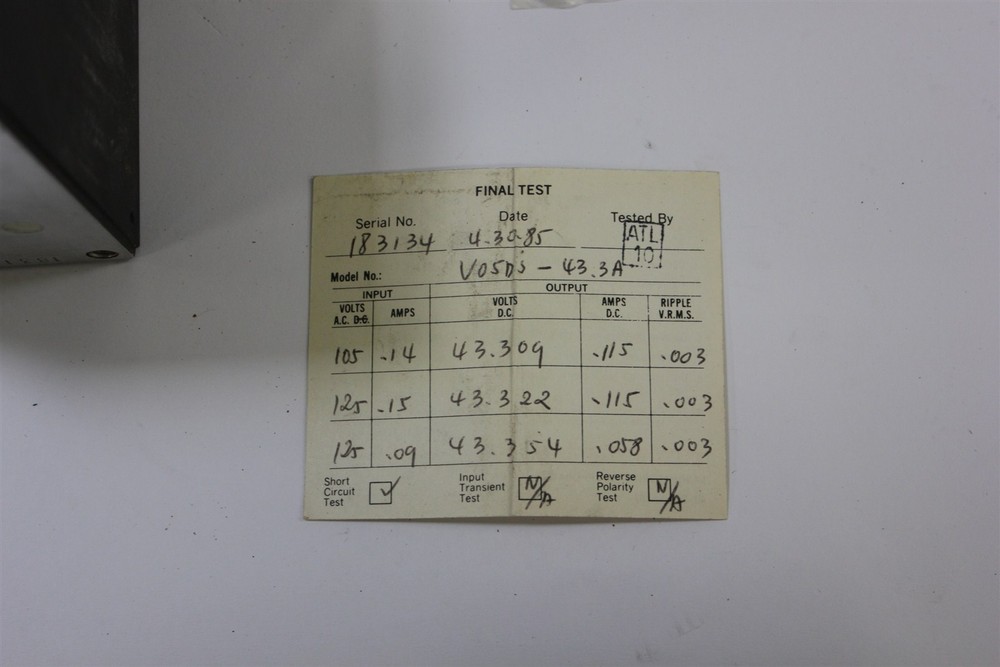 FINAL TEST
Serial No. Date Tested By
183134 4.30.85 ATL
10
Model No.: V05DS - 43.3A
INPUT OUTPUT
VOLTS A.C. D.C. AMPS VOLTS D.C. AMPS D.C. RIPPLE V.R.M.S.
105 .14 43.309 .115 .003
125 .15 43.322 .115 .003
125 .09 43.354 .058 .003
Short Circuit Test ✓ Input Transient Test N/A Reverse Polarity Test N/A